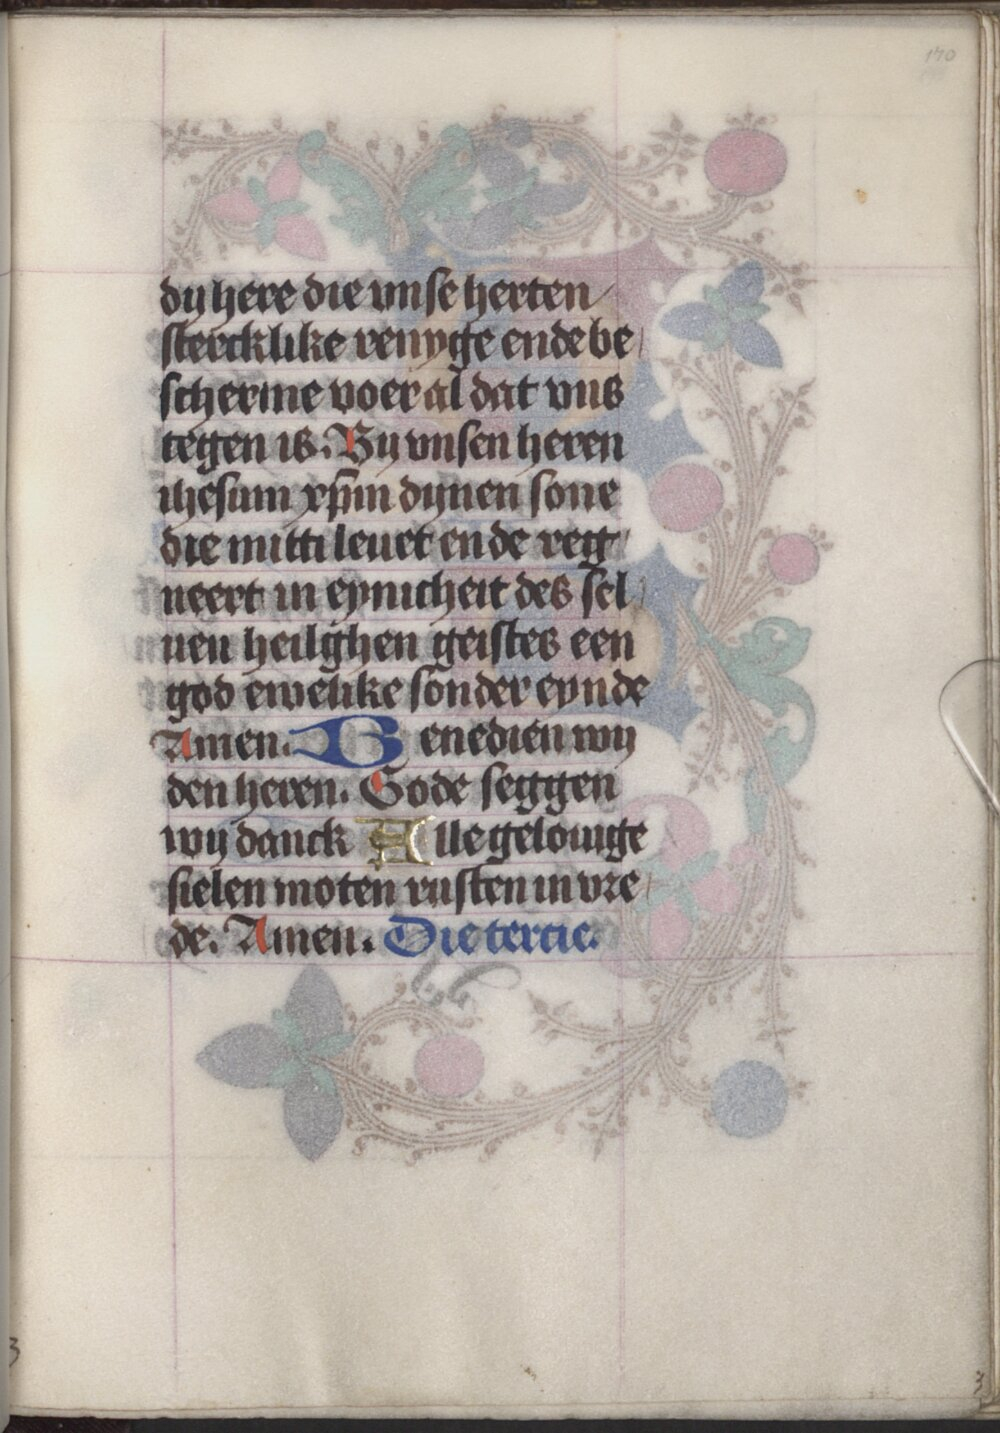 170
du here die vnse herten
stercklike renyge ende be
scherme voer al dat vns
tegen is. By vnsen heren
ihesum xpm dynen sone
die mitti leuet ende reg
neert in eynicheit des sel
uen heilghen geistes een
god ewelike sonder eynde
Amen. Benedien wy
den heren. Gode seggen
wy danck Alle gelouige
sielen moten rusten in vre
de. Amen. Die tercie.